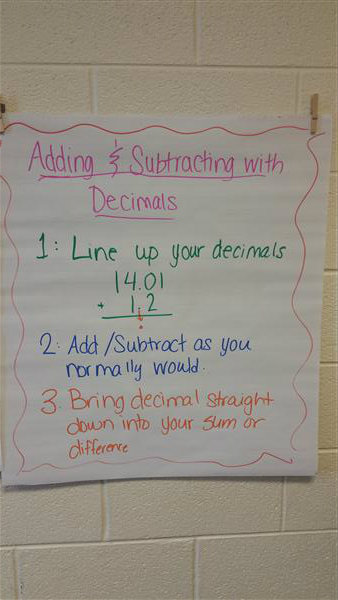 Adding & Subtracting with
Decimals
1: Line up your decimals
14.01
+ 1.2
2: Add/Subtract as you
normally would.
3. Bring decimal straight
down into your sum or
difference